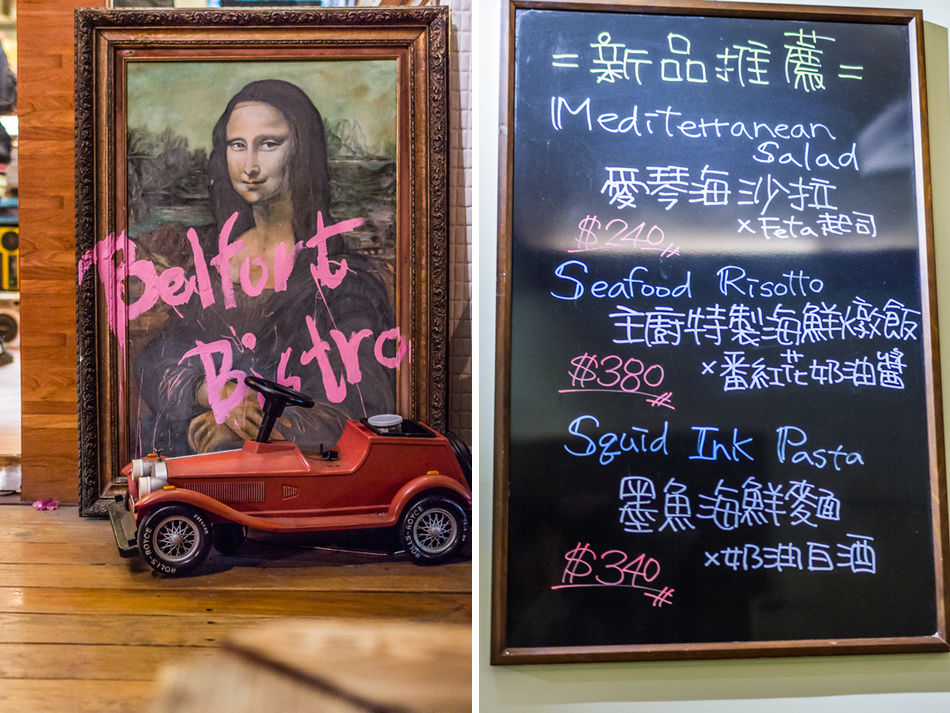 Belfort
Bistro
ROLLS-ROYCE
ROLLS-ROYCE
=新品推薦=
Mediterranean
Salad
愛琴海沙拉
$240
×Feta起司
Seafood Risotto
主廚特製海鮮燉飯
$380
×番紅花奶油醬
Squid Ink Pasta
墨魚海鮮麵
$340
×奶油白酒